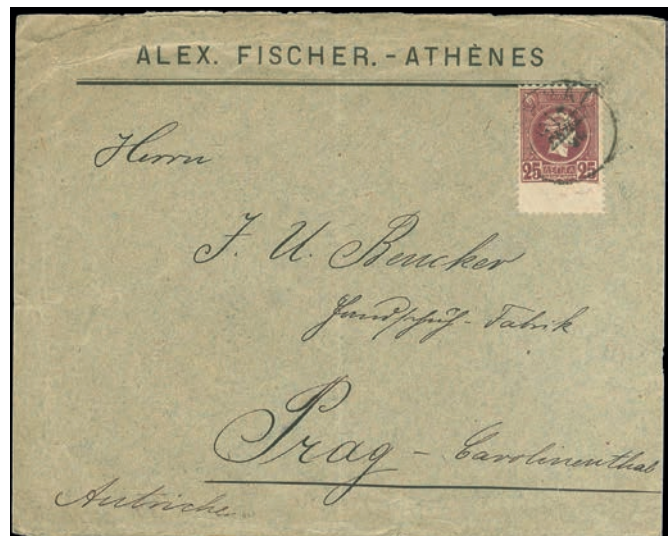 ALEX. FISCHER. - ATHÈNES
25 25
Herrn
J. U. Beucker
Handschuh - Fabrik
Prag - Carolinenthal
Autriche